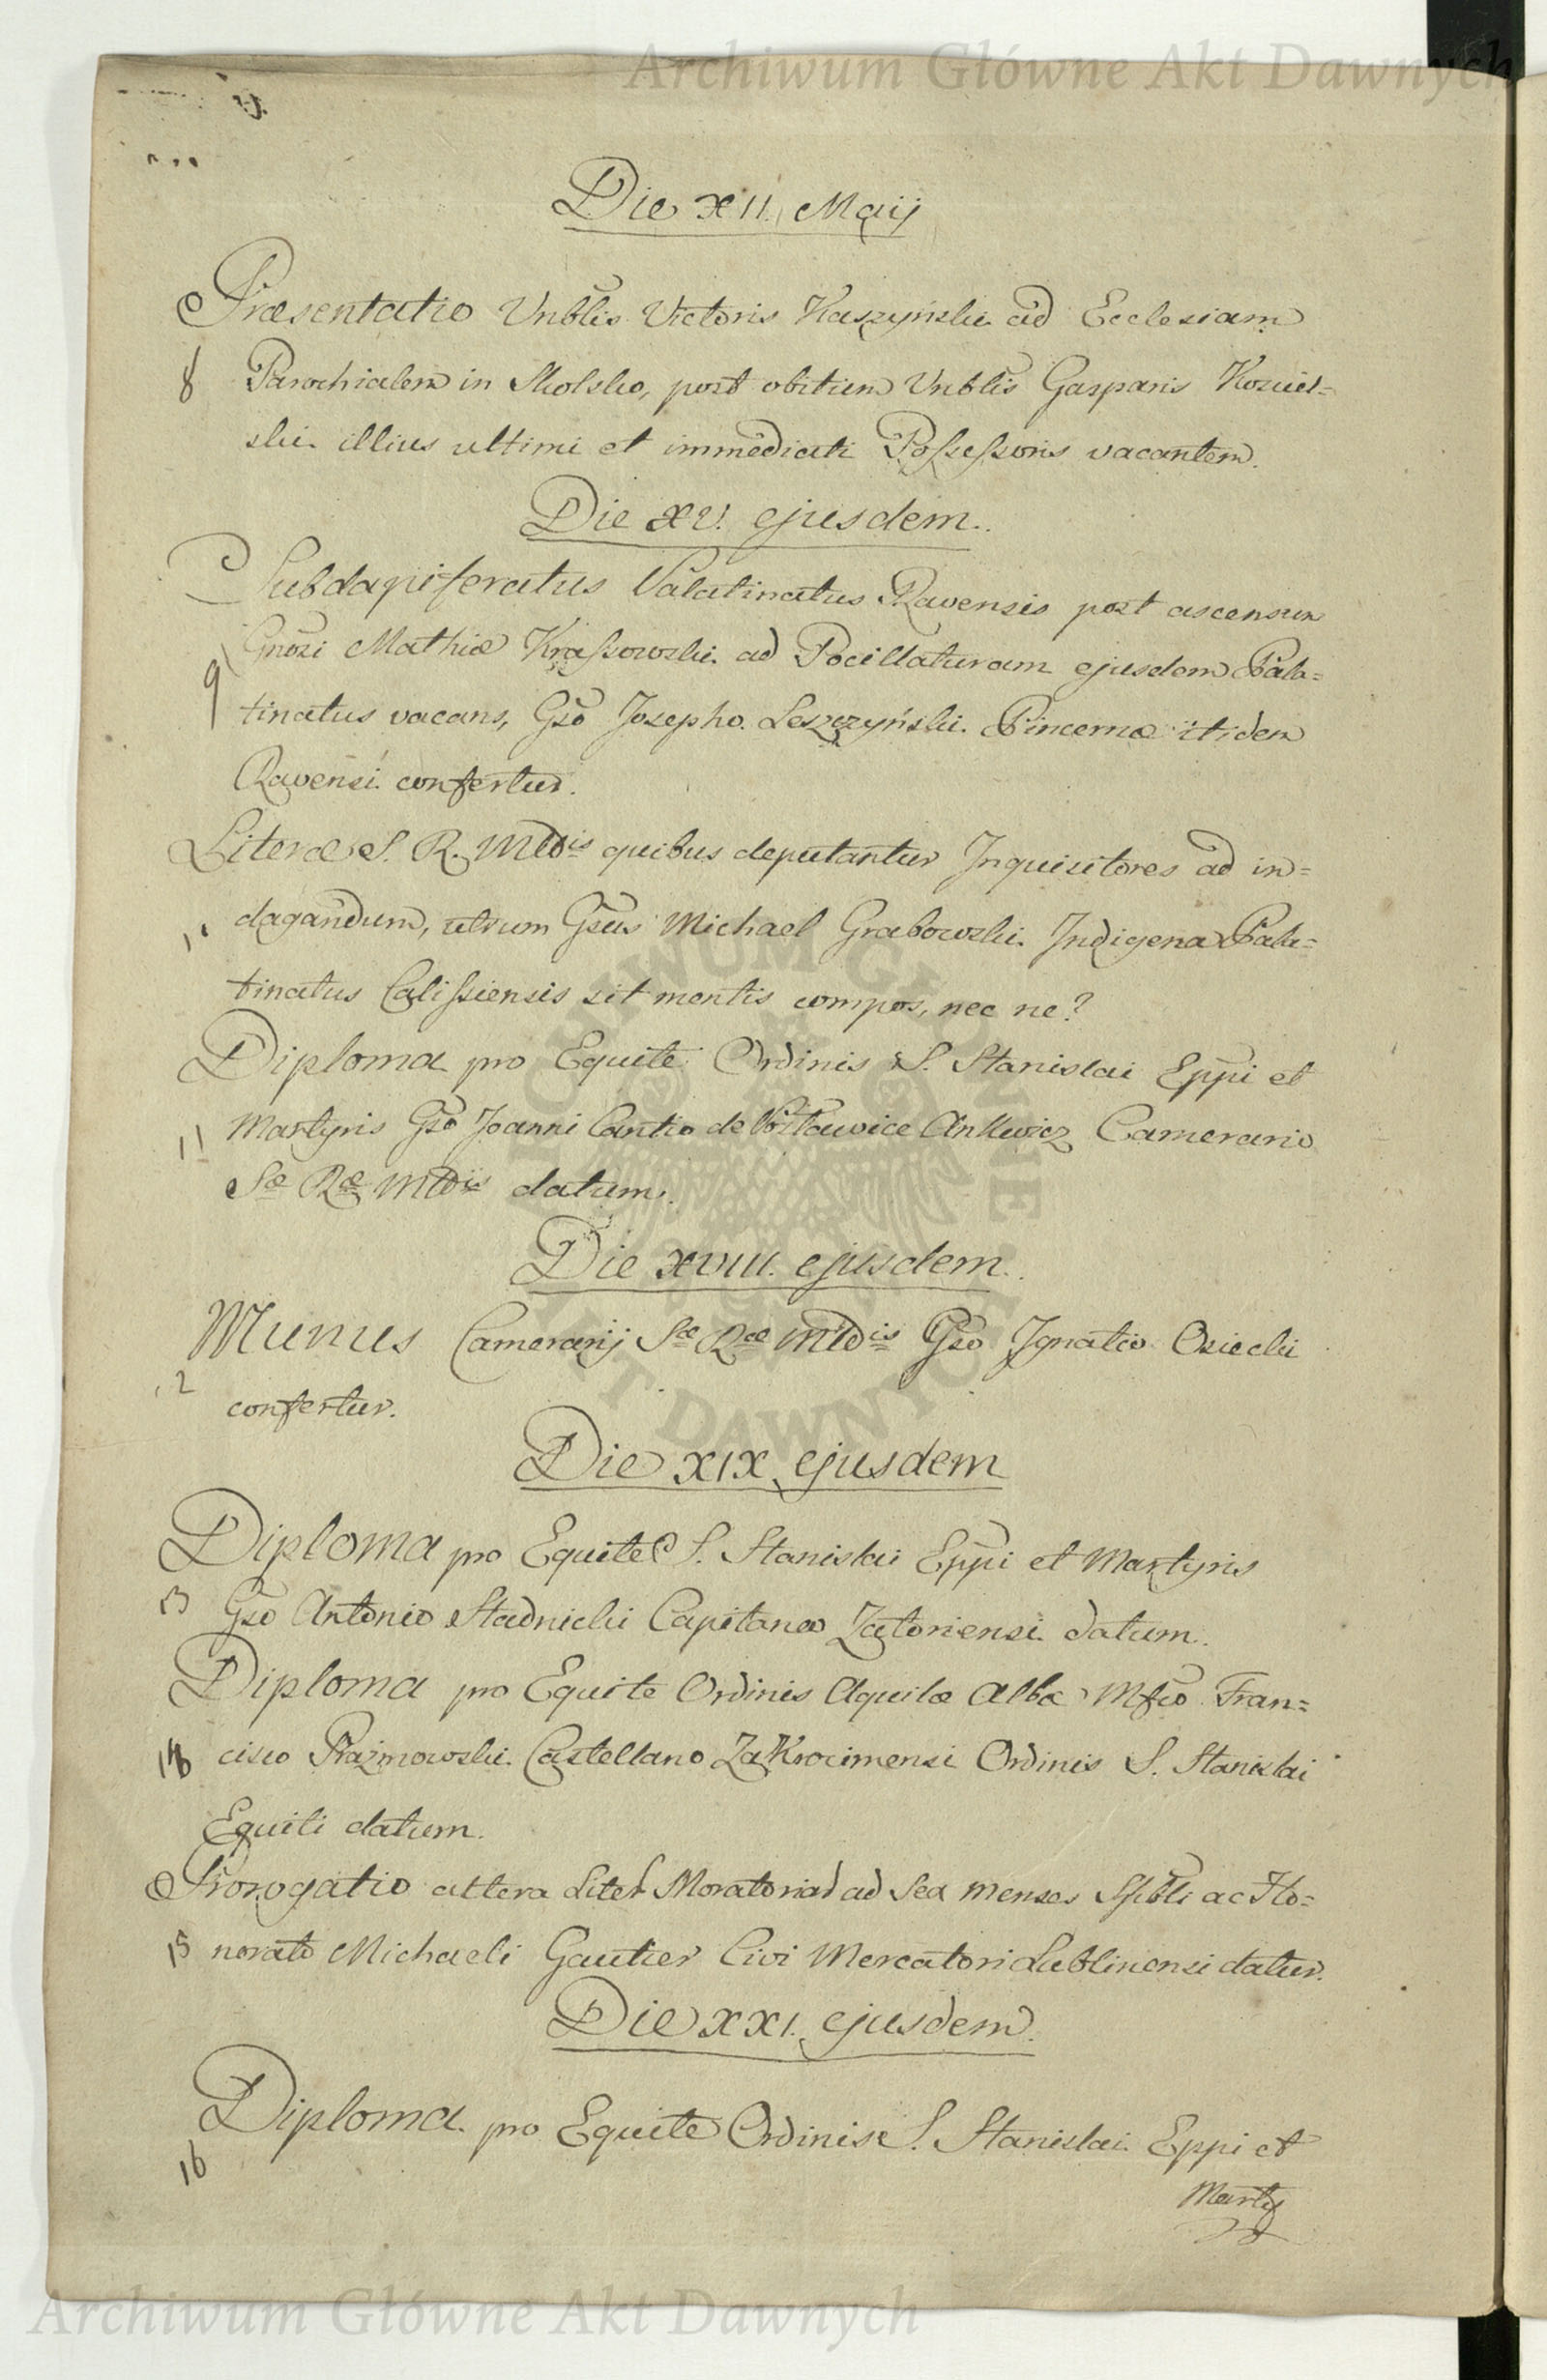 Archiwum Główne Akt Dawnych
Die XII. Maij
Præsentatio Vnblis Victoris Kaszyński ad Ecclesiam
8 Parochialem in Skolsko, post obitum Vnblis Gasparis Koziel=
ski illius ultimi et immediati Possessoris vacantem.
Die XV. ejusdem.
Subdapiferatus Palatinatus Ravensis post ascensum
Gnosi Mathiæ Krassowski ad Pocillaturam ejusdem Pala=
9 tinatus vacans, Gso Josepho Leszczyński Pincernæ itidem
Ravensi confertur.
Literæ S. R. Mttis quibus deputantur Inquisitores ad in=
dagandum, utrum Gsus Michael Grabowski Indigena Pala=
tinatus Calissiensis sit mentis compos, nec ne?
Diploma pro Equite Ordinis S. Stanislai Eppi et
11 Martyris Gso Joanni Cantio de Posławice Ankwicz Camerario
Sæ Ræ Mttis datum.
Die XVIII. ejusdem.
Munus Camerarij Sæ Ræ Mttis Gso Ignatio Osiecki
12 confertur.
Die XIX ejusdem
Diploma pro Equite S. Stanislai Eppi et Martyris
13 Gso Antonio Stadnicki Capitaneo Zatoriensi datum.
Diploma pro Equite Ordinis Aquilæ Albæ Mfco Fran=
14 cisco Prażmowski Castellano Zakrocimensi Ordinis S. Stanislai
Equiti datum.
Prorogatio altera Liter Moratoriar ad Sex menses Spbli ac Ho=
15 norato Michaeli Gautier Civi Mercatori Lublinensi datur.
Die XXI. ejusdem.
Diploma pro Equite Ordinis S. Stanislai Eppi et
16
Marty
Archiwum Główne Akt Dawnych